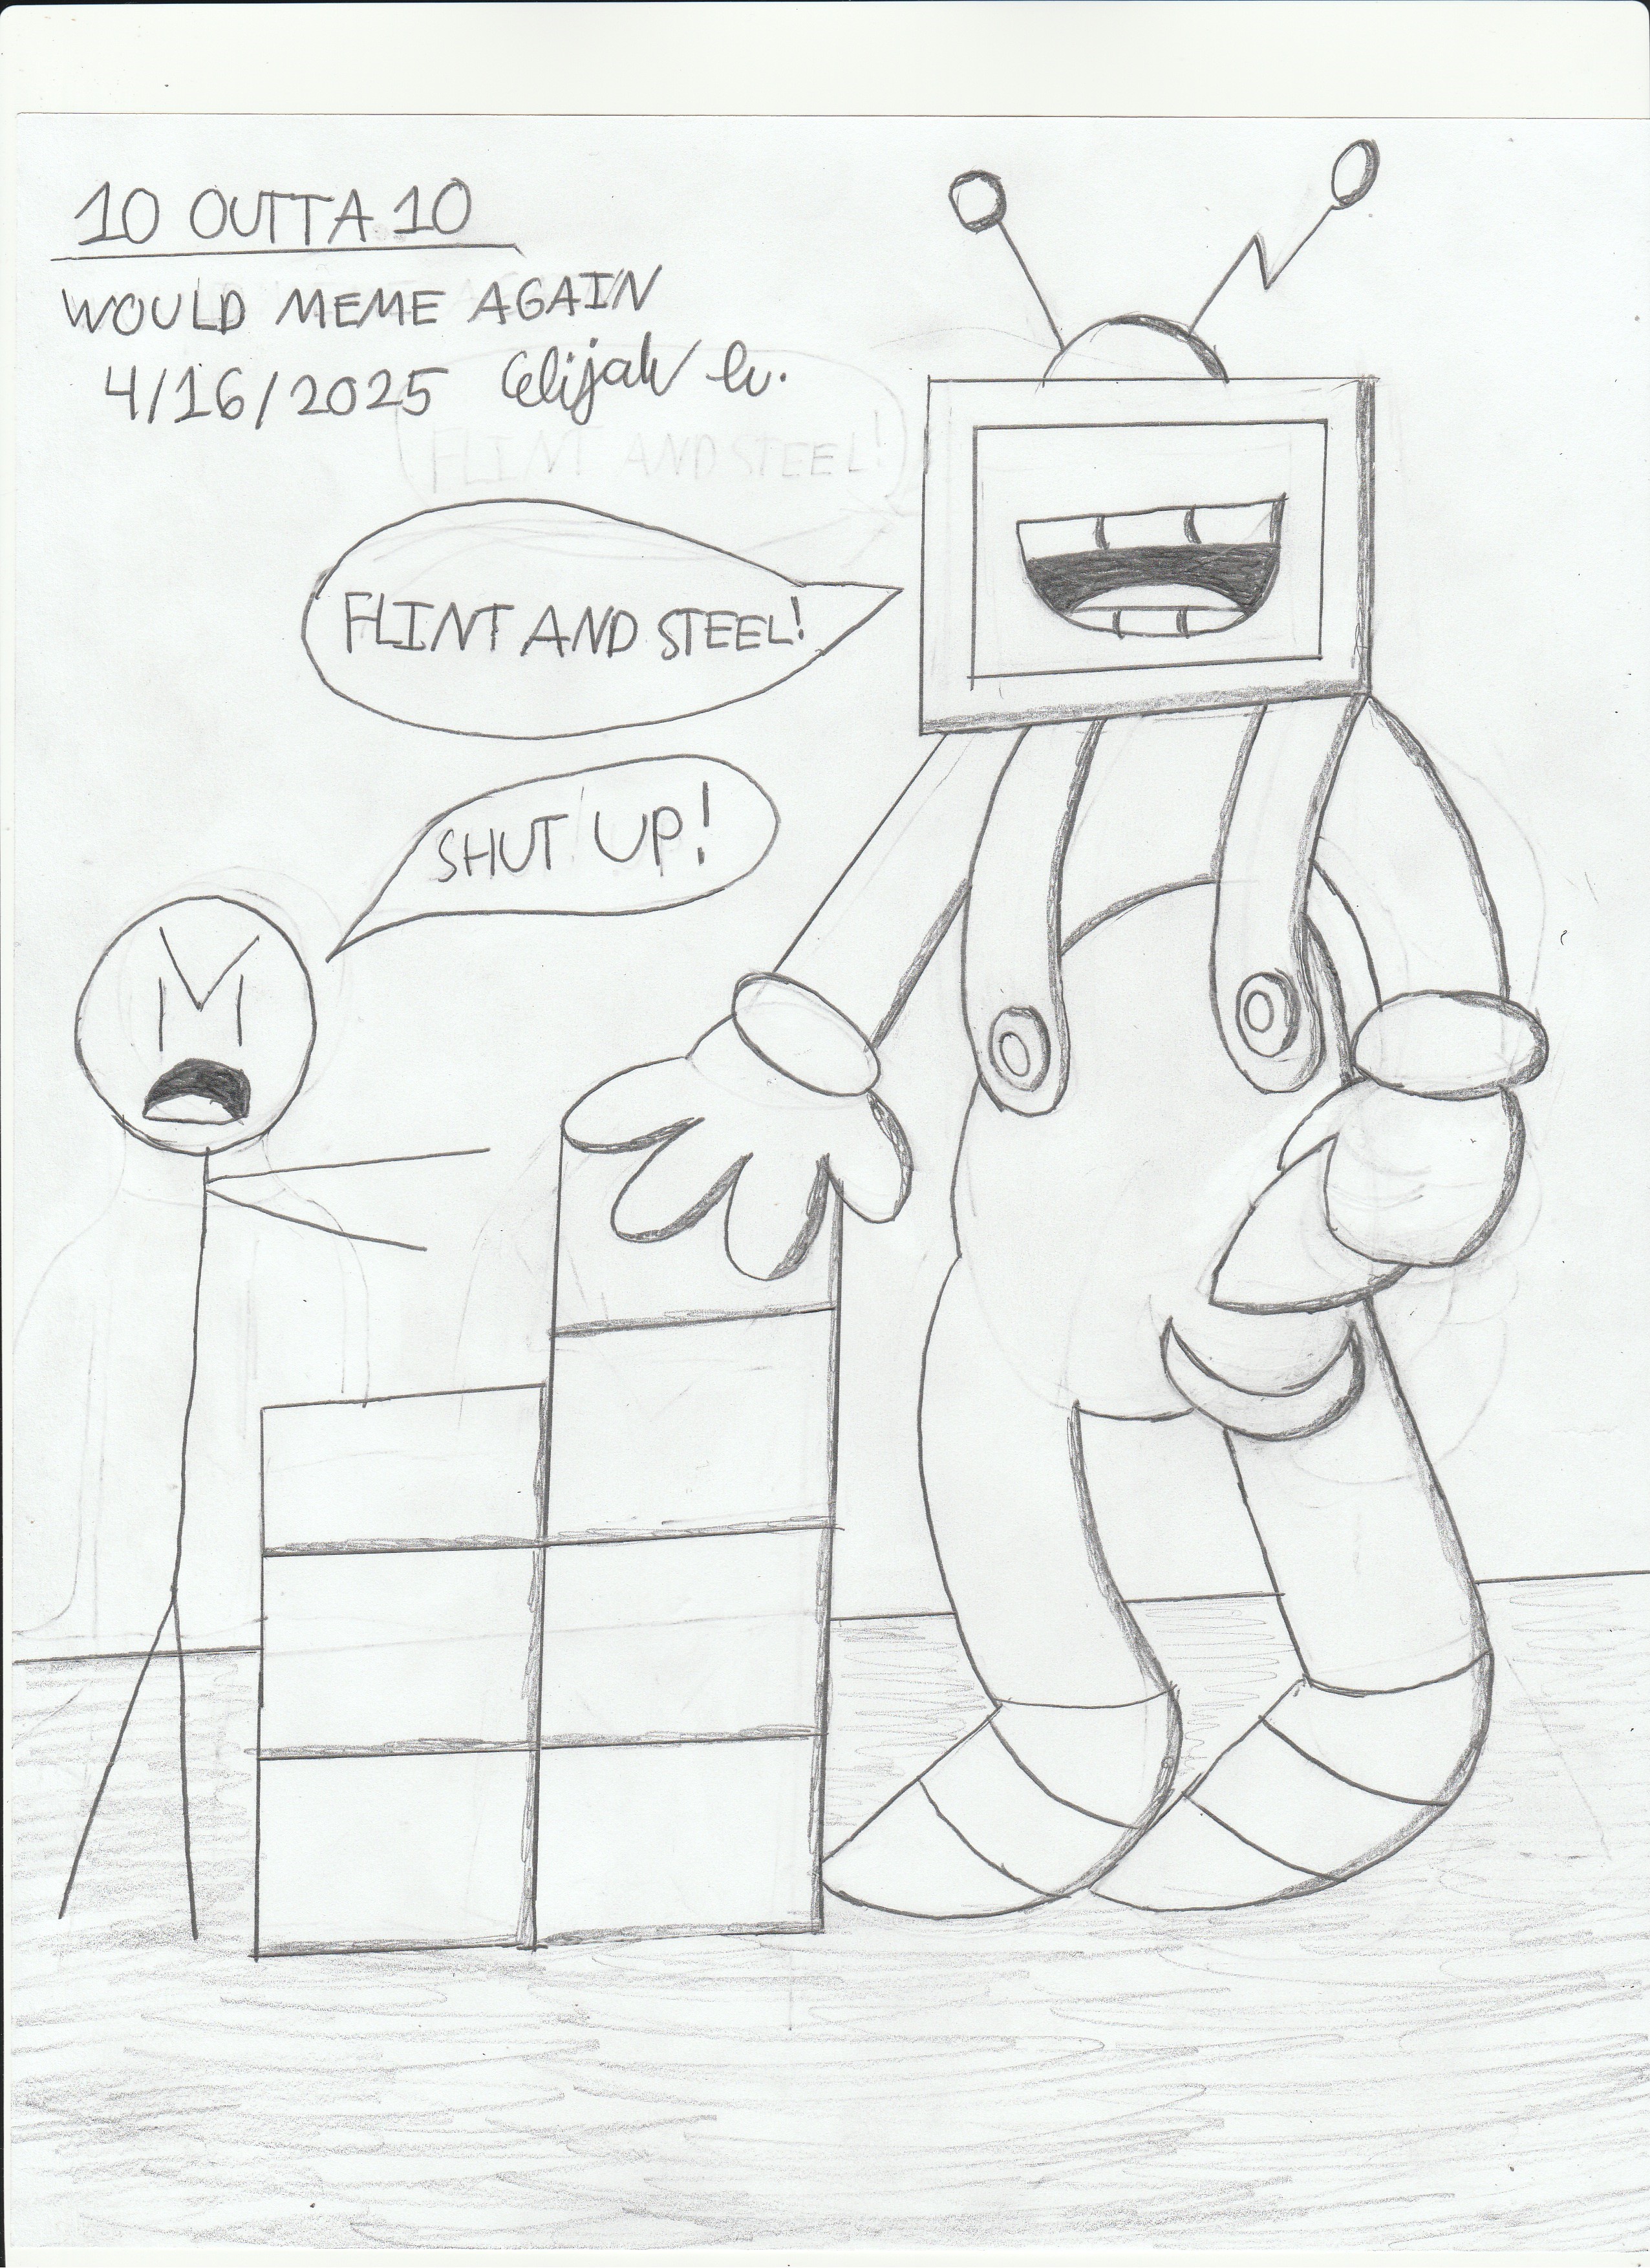 10 OUTTA 10
WOULD MEME AGAIN
4/16/2025 Elijah W.
FLINT AND STEEL!
FLINT AND STEEL!
SHUT UP!